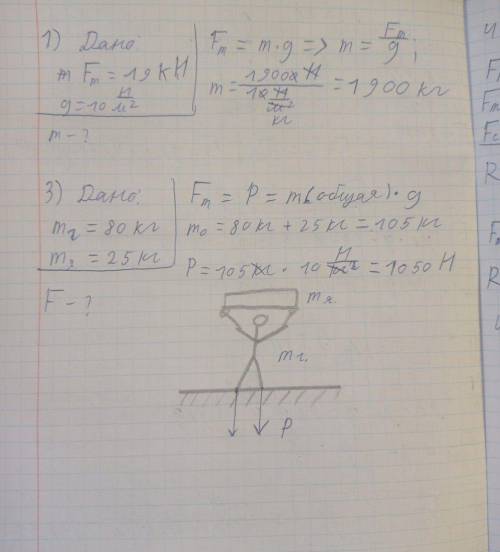 1) Дано:
m Fт = 19 кН
g = 10 Н/м²
m - ?
Fт = m · g => m = Fт/g ;
m = 19000 Н / 10 Н/м² кг = 1900 кг
3) Дано:
mч = 80 кг
mя = 25 кг
F - ?
Fт = P = m(общая) · g
mо = 80 кг + 25 кг = 105 кг
P = 105 кг · 10 Н/м² = 1050 Н
mя.
mч.
P